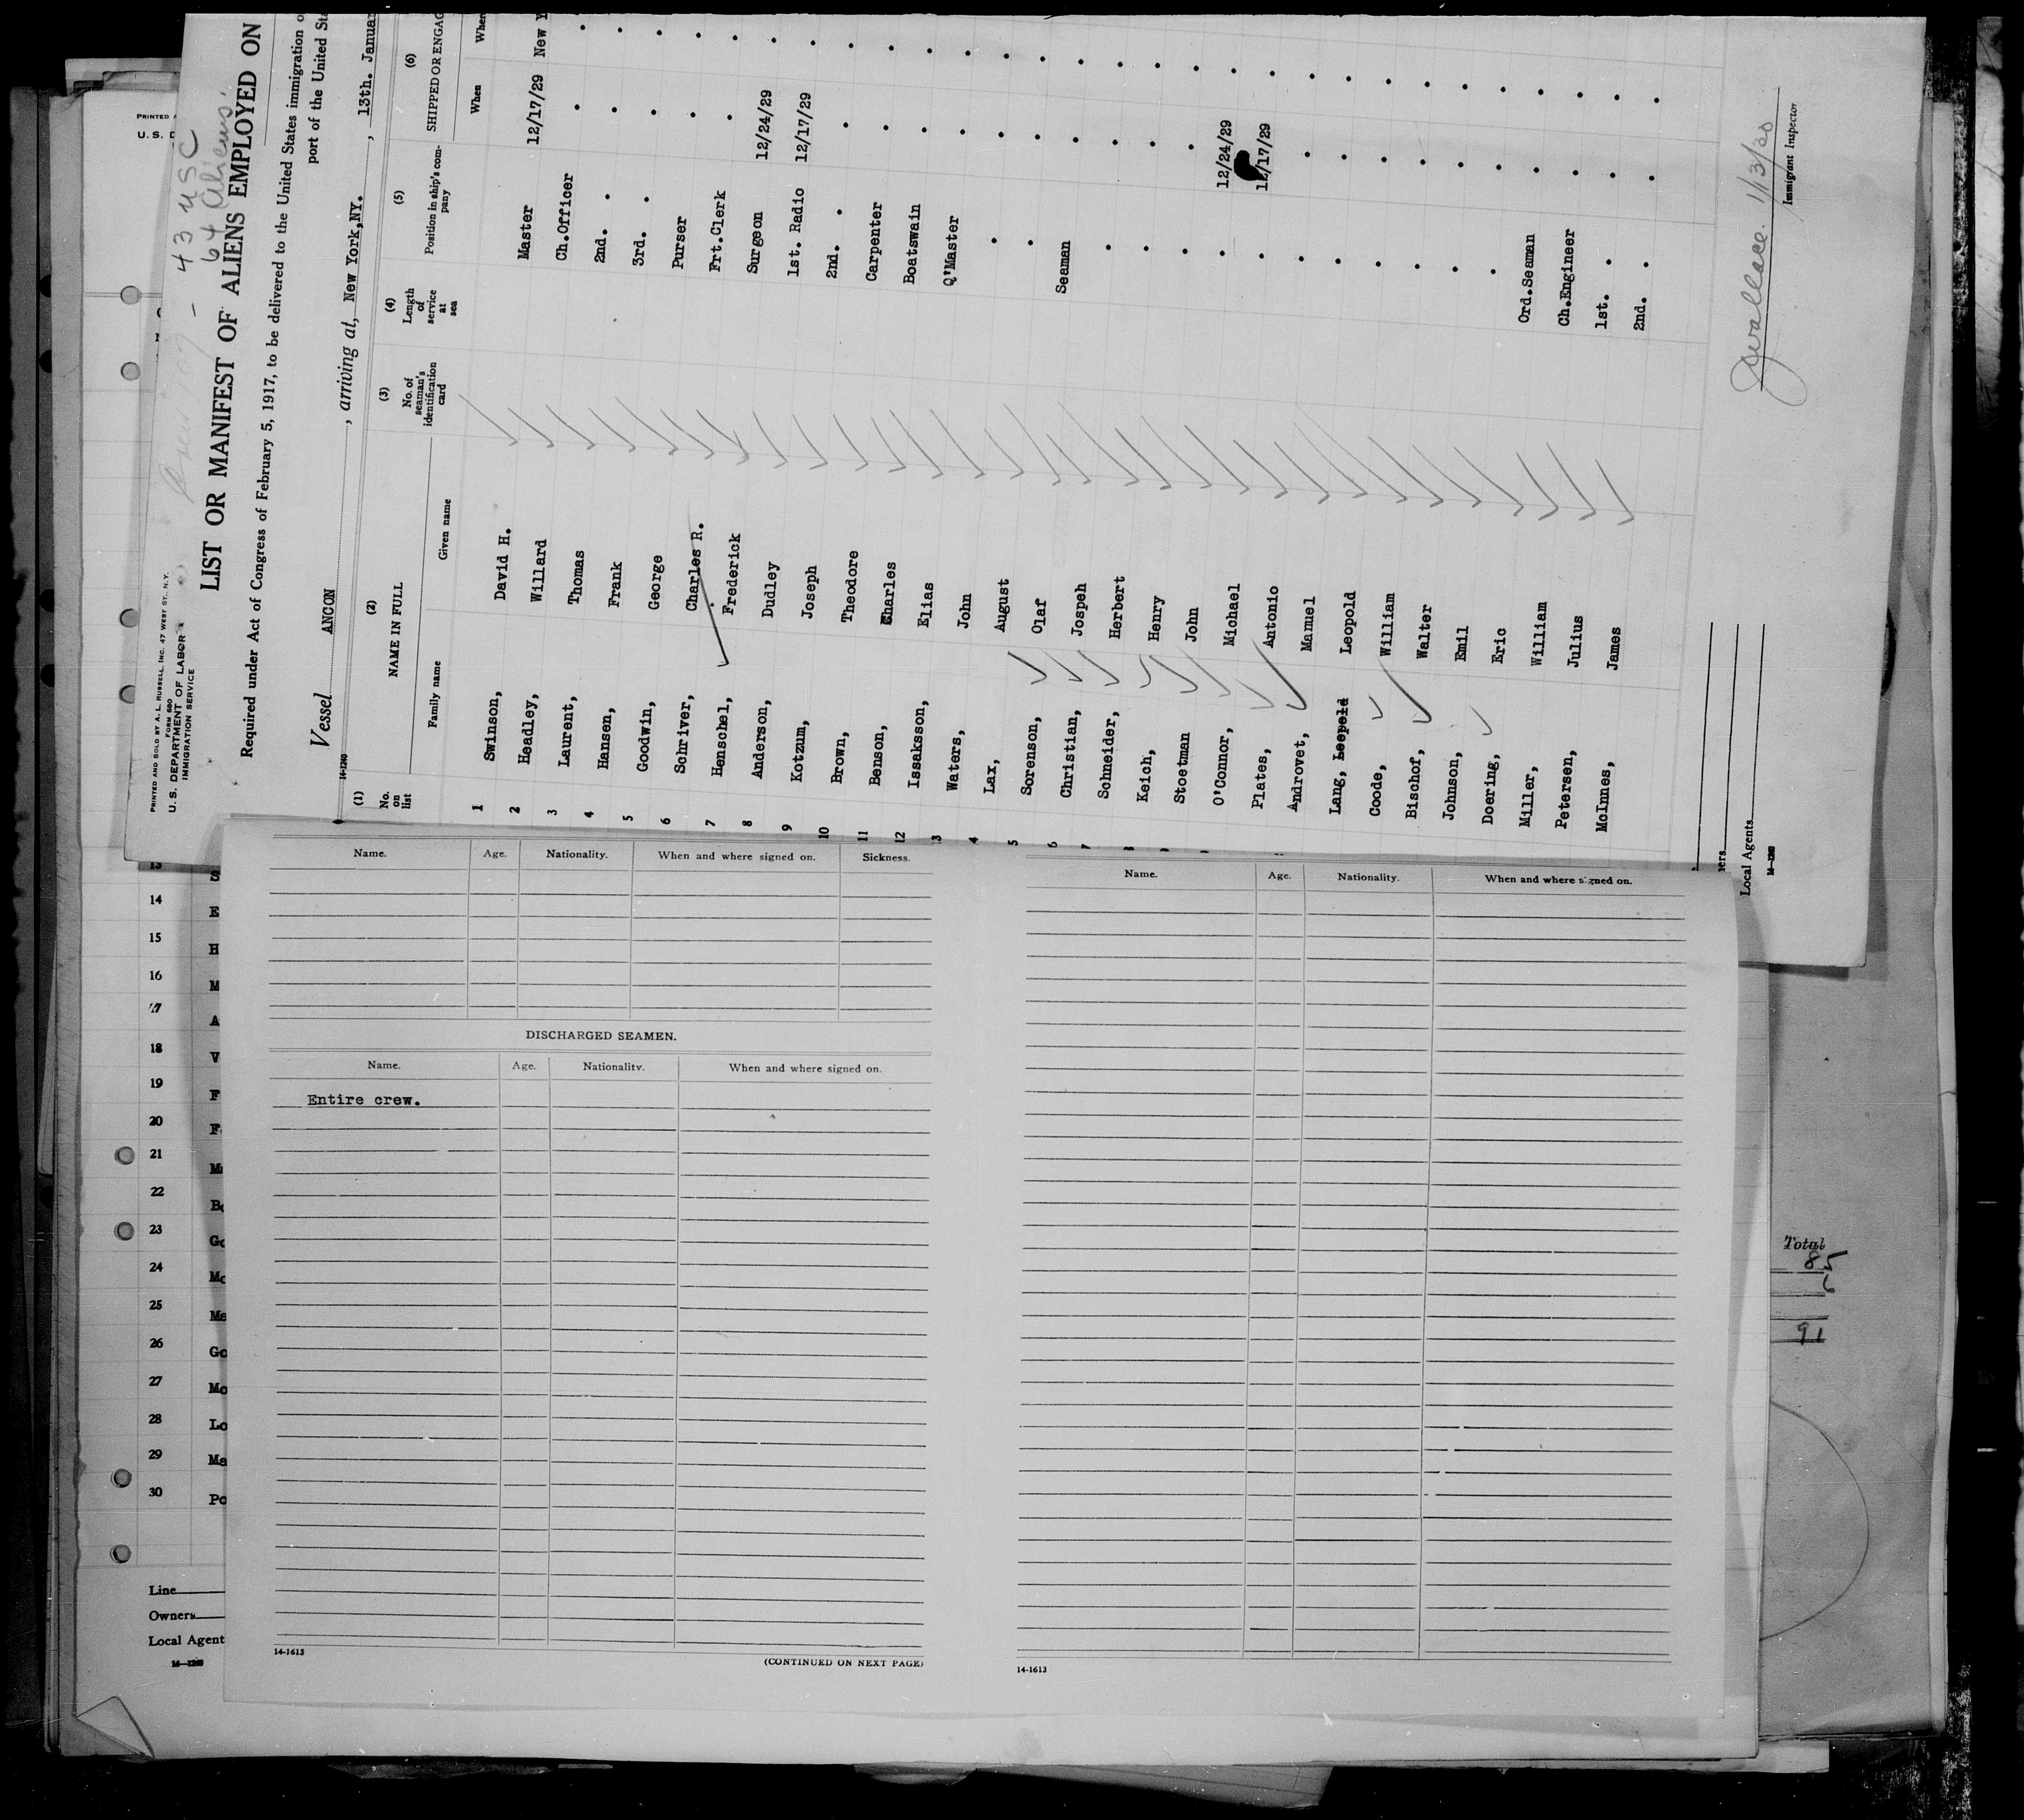 43 USC
64 Aliens.
PRINTED AND SOLD BY A. L. RUSSELL, INC. 47 WEST ST., N.Y.
FORM 680
U. S. DEPARTMENT OF LABOR
IMMIGRATION SERVICE
LIST OR MANIFEST OF ALIENS EMPLOYED ON
Required under Act of Congress of February 5, 1917, to be delivered to the United States immigration
port of the United
Vessel ANCON, arriving at, New York,NY., 13th.
14-1240
(1) (2) (3) (4) (5) (6)
No. on list NAME IN FULL No. of seaman's identification card Length of service at sea Position in ship's company SHIPPED OR
Family name Given name When
1 Swinson, David H. Master 12/17/29 New
2 Headley, Willard Ch.Officer . .
3 Laurent, Thomas 2nd. . . .
4 Hansen, Frank 3rd. . . .
5 Goodwin, George Purser . .
6 Schriver, Charles R. Frt.Clerk . .
7 Henschel, Frederick Surgeon 12/24/29 .
8 Anderson, Dudley 1st. Radio 12/17/29 .
9 Kotzum, Joseph 2nd. . . .
10 Brown, Theodore Carpenter . .
11 Benson, Charles Boatswain . .
12 Issaksson, Elias Q'Master . .
13 Waters, John . . .
4 Lax, August . . .
5 Sorenson, Olaf Seaman . .
6 Christian, Jospeh . . .
7 Schneider, Herbert . . .
Keich, Henry . . .
Stoetman John . . .
O'Connor, Michael . 12/24/29 .
Plates, Antonio . 12/17/29 .
Androvet, Manuel . . .
Lang, Leopold . . .
Goode, William . . .
Bischof, Walter . . .
Johnson, Emil . . .
Doering, Eric . . .
Miller, William Ord.Seaman . .
Petersen, Julius Ch.Engineer . .
McInnes, James 1st. . . .
2nd. . . .
Local Agents
14-1240
1/13/30
Immigrant Inspector
PRINTED
U. S.
13 S
14 E
15 H
16 M
17 A
18 V
19 F
20 F
21 M
22 Bo
23 Go
24 Mc
25 Ma
26 Go
27 Mo
28 Lo
29 Ma
30 Po
Line
Owners
Local Agent
14-1240
Name. Age. Nationality. When and where signed on. Sickness.
DISCHARGED SEAMEN.
Name. Age. Nationality. When and where signed on.
Entire crew.
14-1613
(CONTINUED ON NEXT PAGE)
Name. Age. Nationality. When and where signed on.
14-1613
Total
85
91